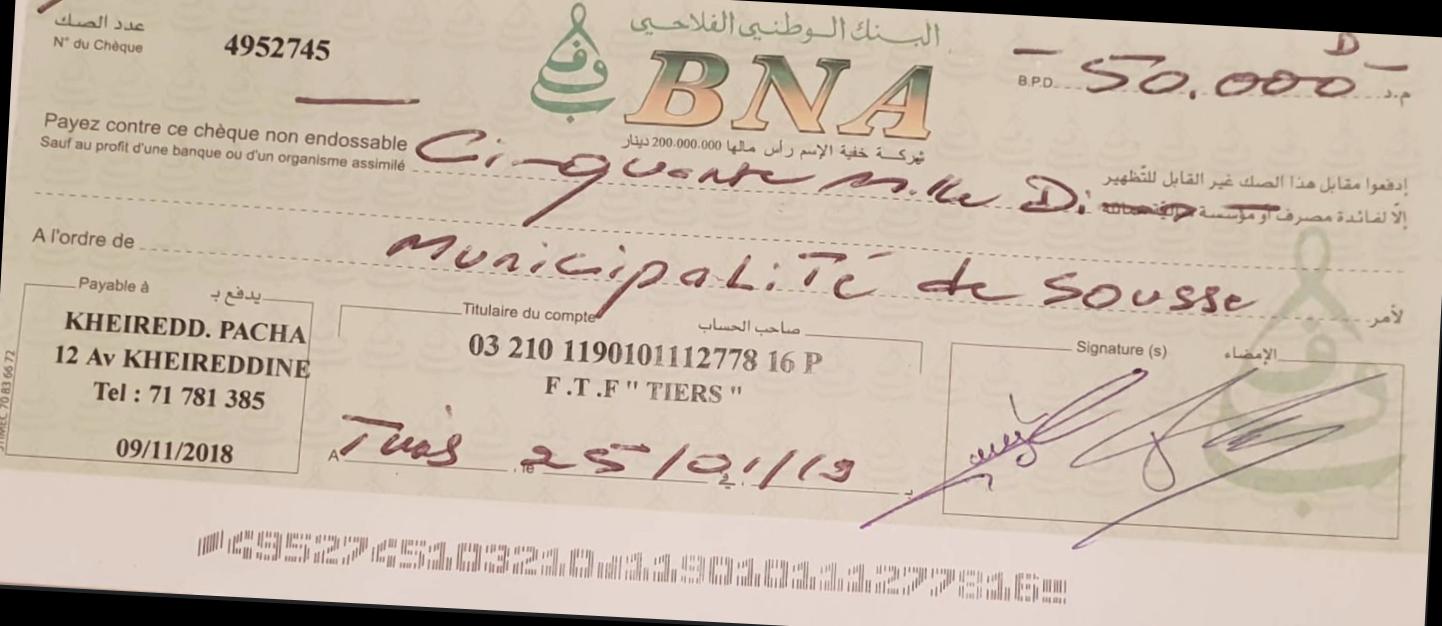 عدد الصك
N° du Chèque 4952745
البنك الوطني الفلاحي
BNA
شركة خفية الإسم رأس مالها 200.000.000 دينار
D
B.P.D. 50.000 م.د
Payez contre ce chèque non endossable
Sauf au profit d'une banque ou d'un organisme assimilé
Cinquante mille D.
إدفعوا مقابل هذا الصك غير القابل للتظهير
إلا لفائدة مصرف أو مؤسسة
A l'ordre de Municipalité de Sousse لأمر
Payable à يدفع بـ
KHEIREDD. PACHA
12 Av KHEIREDDINE
Tel : 71 781 385
09/11/2018
Titulaire du compte صاحب الحساب
03 210 1190101112778 16 P
F.T.F " TIERS "
A Tunis, le 25/01/19
Signature (s) الإمضاء
4952745103210 119010111277816